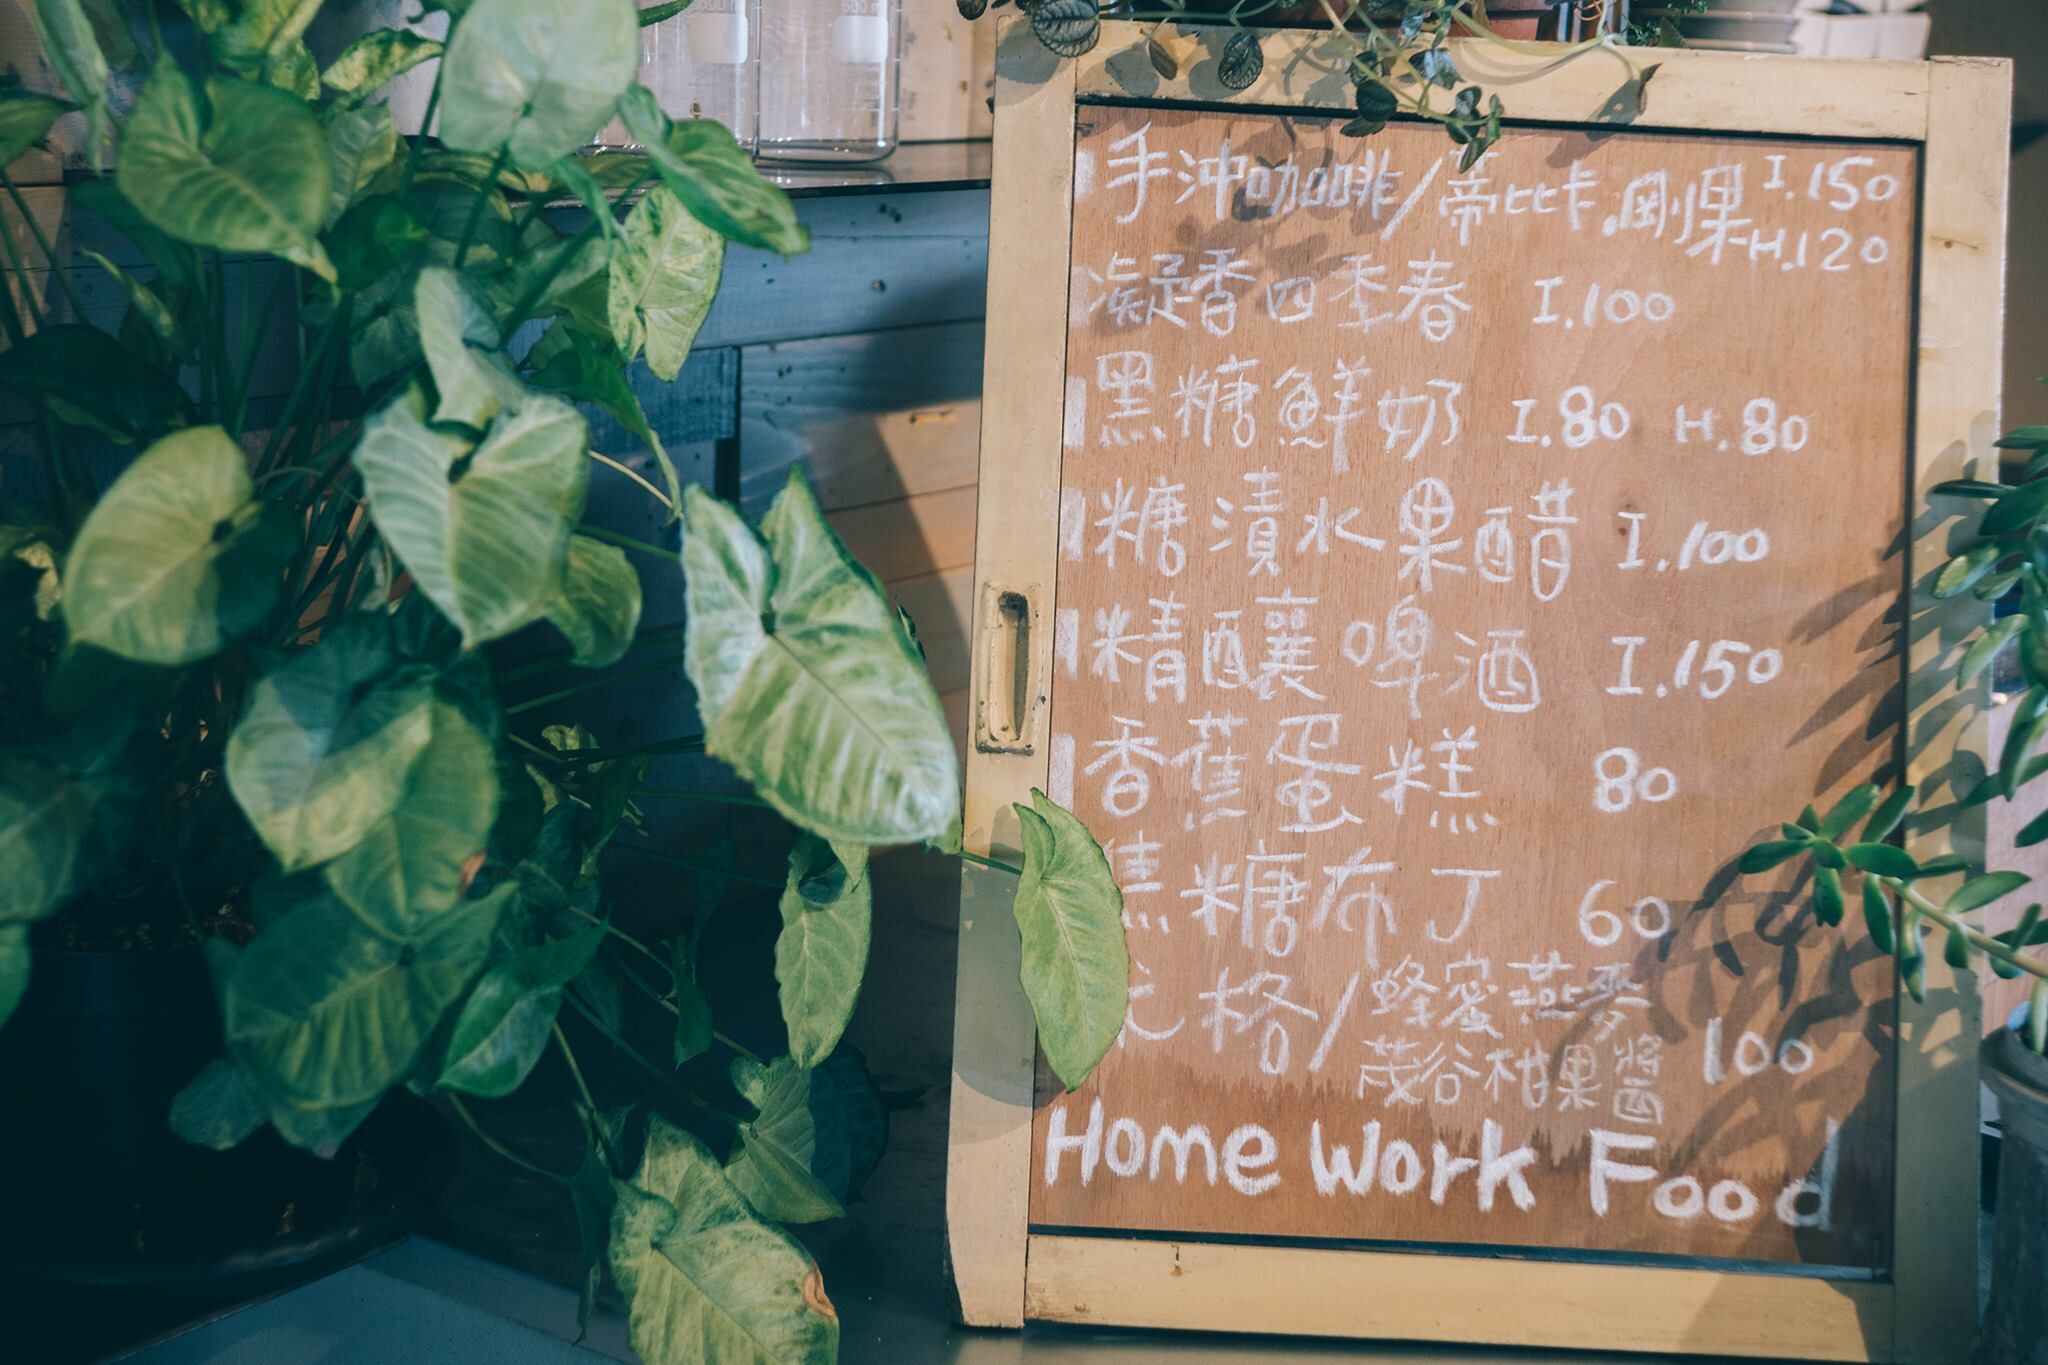 手沖咖啡/蒂比卡.剛果 I.150
H.120
凝香四季春 I.100
黑糖鮮奶 I.80 H.80
糖漬水果醋 I.100
精釀啤酒 I.150
香蕉蛋糕 80
焦糖布丁 60
格/蜂蜜燕麥 100
茂谷柑果醬
Home Work Food